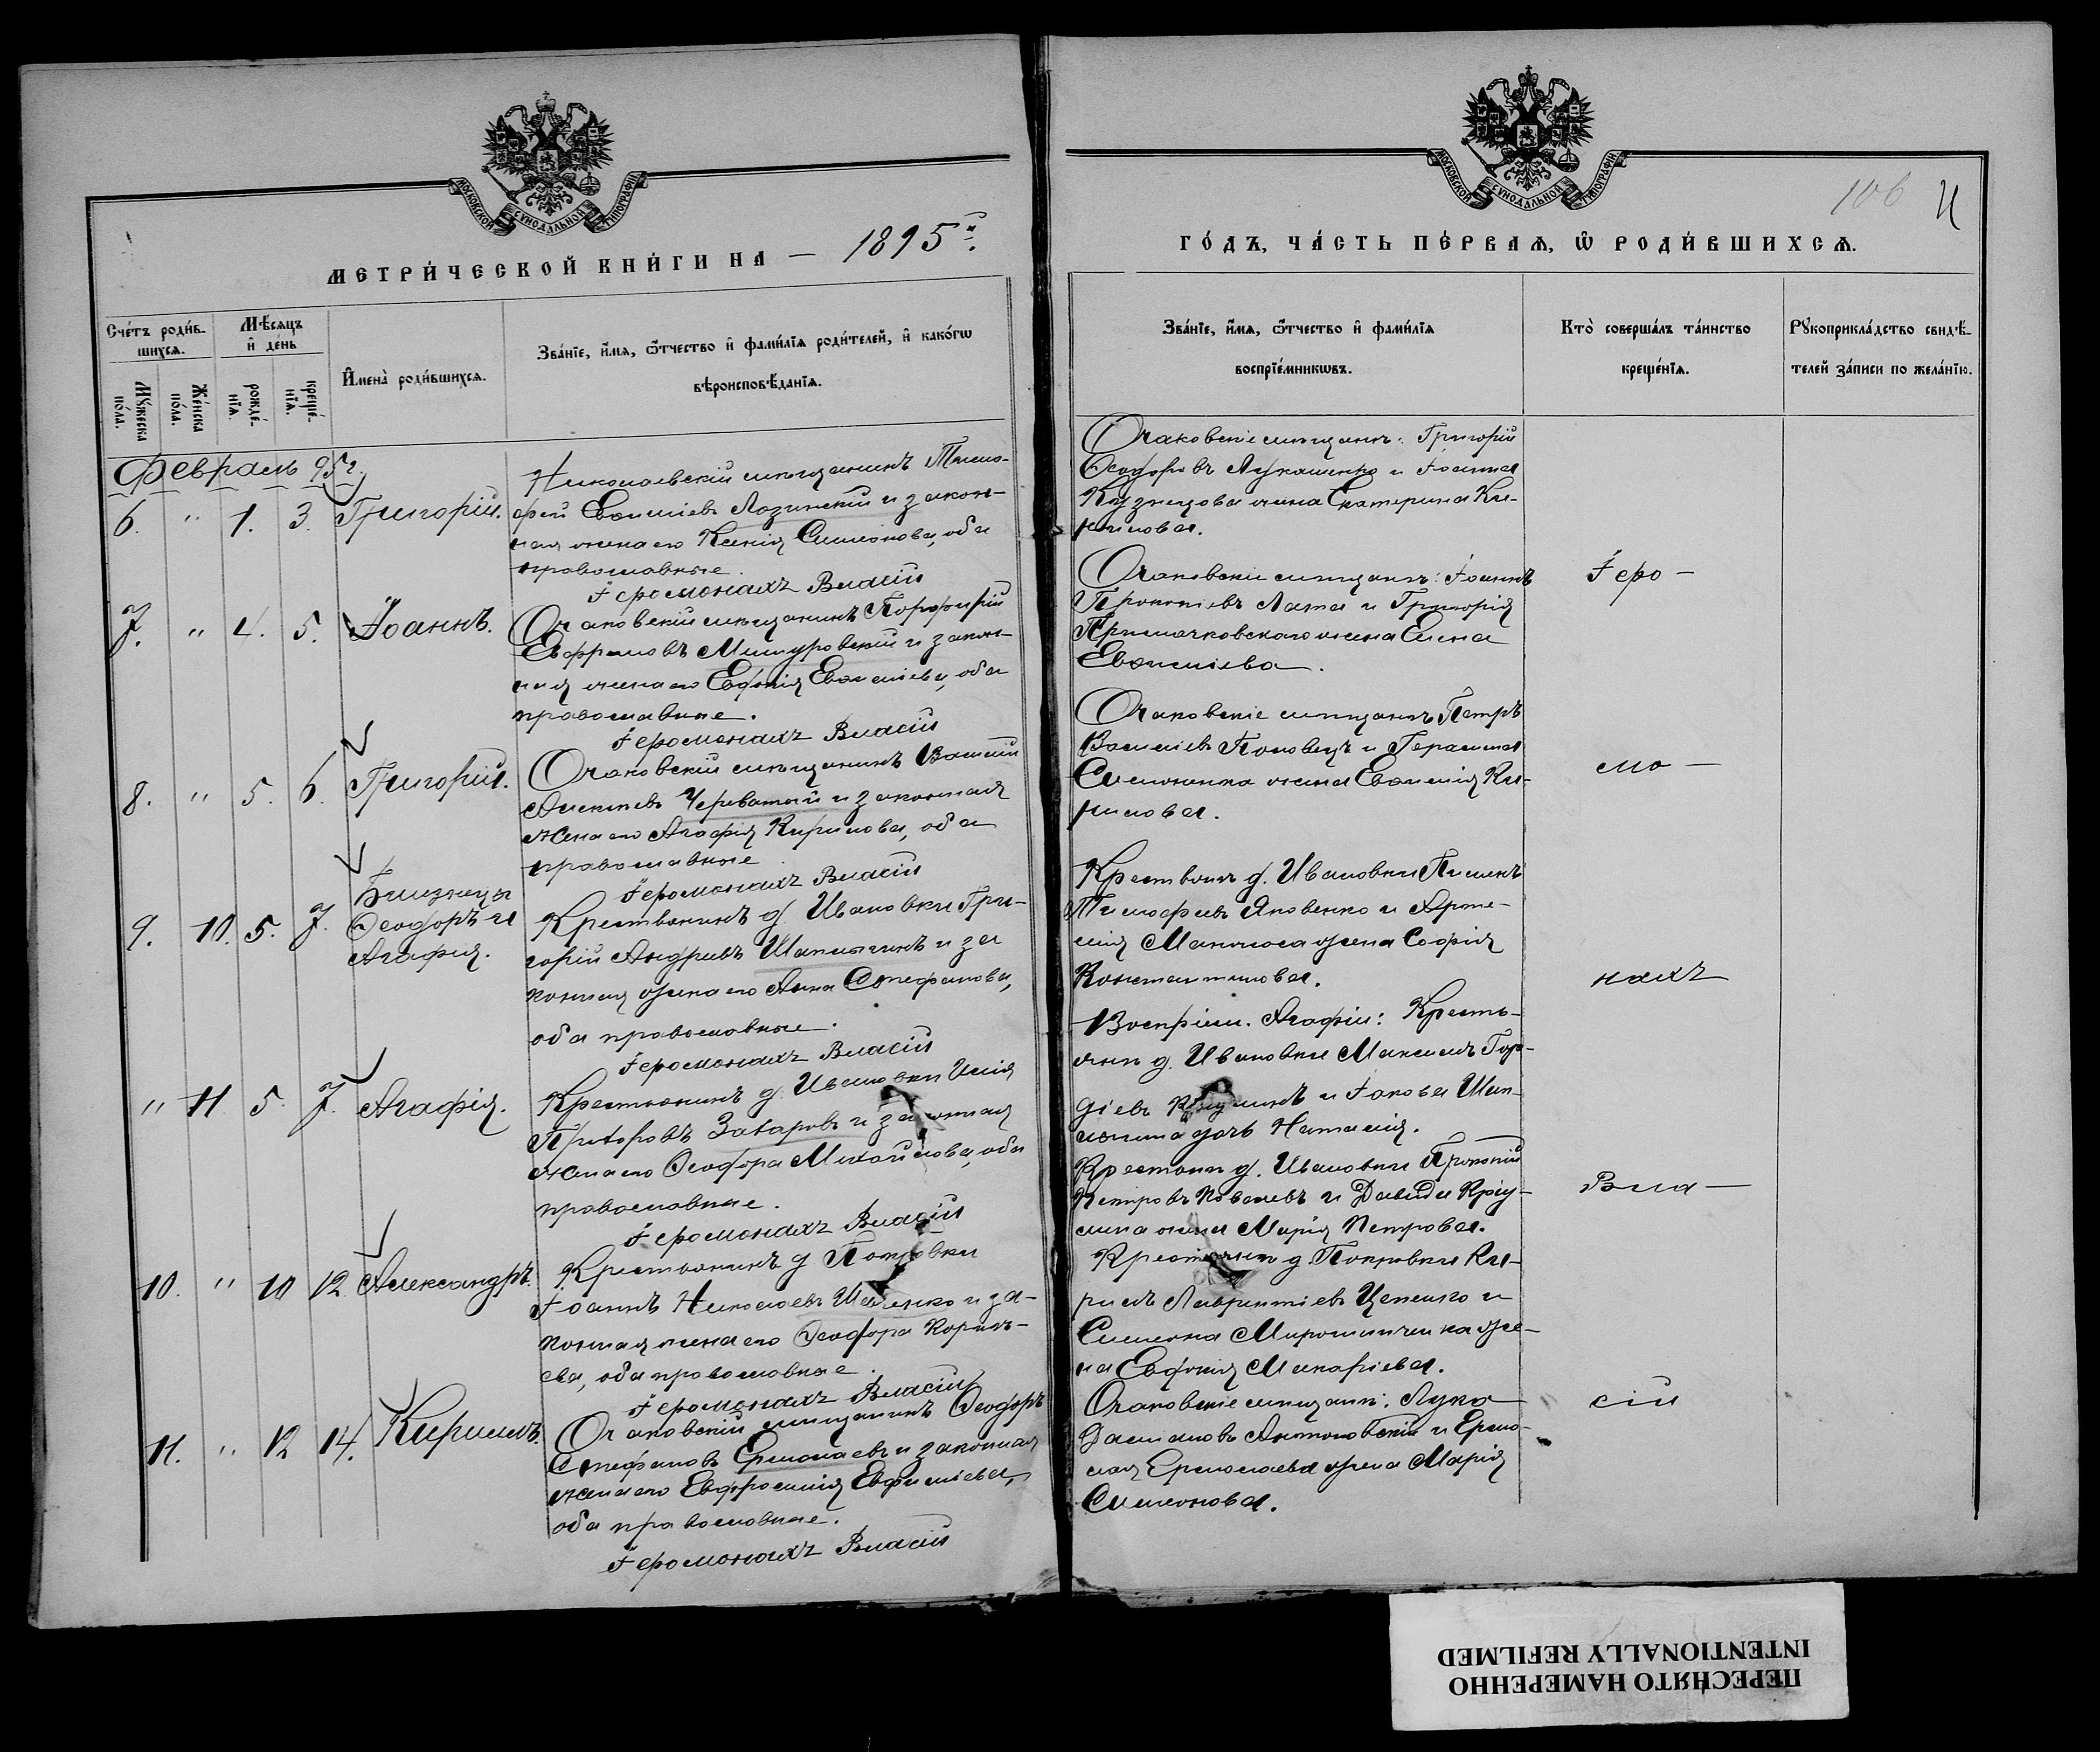 МОСКОВСКОЙ СѴНОДАЛЬНОЙ ТИПОГРАФІИ
МЕТРИ́ЧЕСКОЙ КНИ́ГИ НА — 1895й.
Сче́тъ роди́в-
шихсѧ.
Мѣ́сѧцъ
и҆ де́нь
Мꙋ́жеска по́ла.
Же́нска по́ла.
рожде́-
нїѧ.
креще́-
нїѧ.
И҆мена̀ роди́вшихсѧ.
Зва́нїе, и҆́мѧ, ѻ҆́тчество и҆ фами́лїѧ роди́телей, и҆ како́гѡ
вѣроисповѣ́данїѧ.
Февраль 95 г.
6. " 1. 3. Григорій.
Николаевскій мѣщанинъ Тимо-
фей Евѳиміевъ Лозинскій и закон-
ная жена его Ксенія Симеонова, оба
православные.
Іеромонахъ Власій
7. " 4. 5. Іоаннъ.
Очаковскій мѣщанинъ Порфирій
Ефремовъ Мишуровскій и закон-
ная жена его Евдокія Евѳиміева, оба
православные.
Іеромонахъ Власій
8. " 5. 6. Григорій.
Очаковскій мѣщанинъ Василій
Алексѣевъ Череватый и законная
жена его Агафія Кирилова, оба
православные
Іеромонахъ Власій
9. 10. 5. 7. Близнецы
Ѳеодоръ и
Агафія.
Крестьянинъ д. Ивановки Гри-
горій Андреевъ Шапшинъ и за
конная жена его Анна Стефанова,
оба православные.
Іеромонахъ Власій
" 11 5. 7. Агафія.
Крестьянинъ д. Ивановки Илія
Захаровъ и законная
жена его Ѳеодора Михайлова, оба
православные.
Іеромонахъ Власій
10. " 10 12. Александръ.
Крестьянинъ д Покровки
Іоаннъ Николаевъ и за-
конная жена его Ѳеодора Корнѣ-
ева, оба православные.
Іеромонахъ Власій
11. " 12 14. Кириллъ.
Очаковскій мѣщанинъ Ѳеодоръ
Стефановъ Ермолаевъ и законная
жена его Евфросинія Евфиміева,
оба православные.
Іеромонахъ Власій
МОСКОВСКОЙ СѴНОДАЛЬНОЙ ТИПОГРАФІИ
106
ГО́ДЪ, ЧА́СТЬ ПЕ́РВАѦ, Ѡ҆ РОДИ́ВШИХСѦ.
Зва́нїе, и҆́мѧ, ѻ҆́тчество и҆ фами́лїѧ
воспрїе́мникѡвъ.
Кто̀ соверша́лъ та́инство
креще́нїѧ.
Рꙋкоприкла́дство свидѣ́-
телей за́писи по жела́нїю.
Очаковскіе мѣщане: Григорій
Ѳеодоровъ Лукашенко и Іоанна
Кузнецова жена Екатерина Ки-
рилова.
Очаковскіе мѣщане: Іоаннъ
Прокопіевъ Лата и Григорія
Примачковскаго жена Елена
Евѳиміева.
Очаковскіе мѣщане Петръ
Василіевъ Половецъ и Герасима
Симоненка жена Евѳимія Ки-
рилова.
Крестьяне д. Ивановки Пименъ
Тимофеевъ Яковенко и Арте-
мія Маколоса жена Софія
Константинова.
Воспріем. Агафіи: Кресть-
яне д. Ивановки Максимъ Гор-
діевъ и Іакова Шап-
шина дочь Наталія.
Крестьяне д. Ивановки Прокопій
Петровъ Ковалевъ и Давида
жена Марія Петрова.
Крестьяне д. Покровки Ки-
рилъ Лаврентіевъ Цепенко и
Симеона Мирошниченка же-
на Евдокія Макаріева.
Очаковскіе мѣщане: Лука
Даміановъ Антоновскій и Ермо-
лая Ермолаева жена Марія
Симеонова.
Іеро-
мо-
нахъ
Вла-
сій
ПЕРЕСНЯТО НАМЕРЕННО
INTENTIONALLY REFILMED